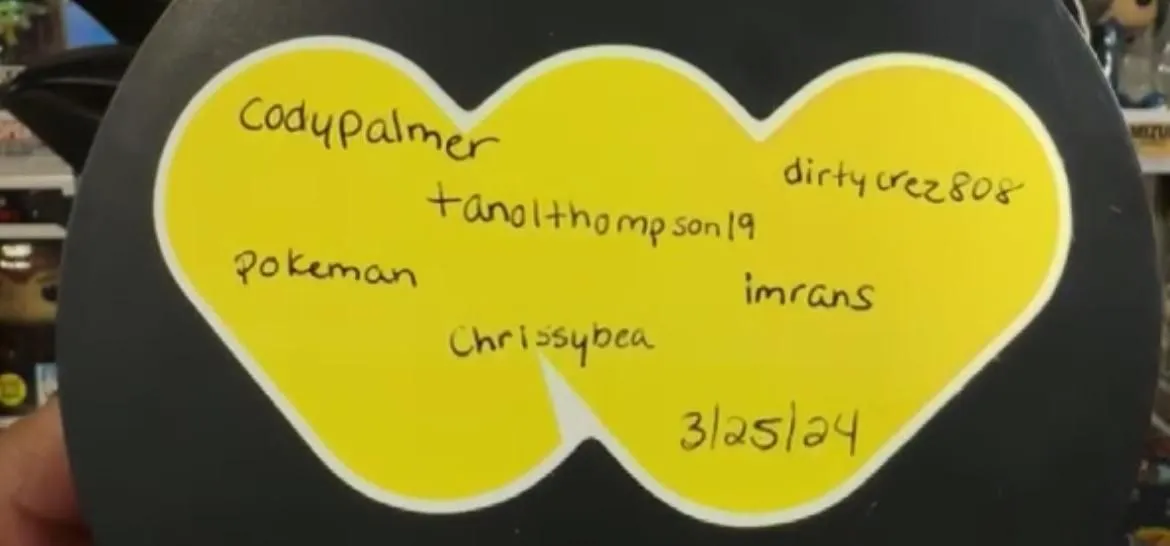 codypalmer
dirtycrez808
tanolthompson19
pokeman
imrans
Chrissybea
3/25/24